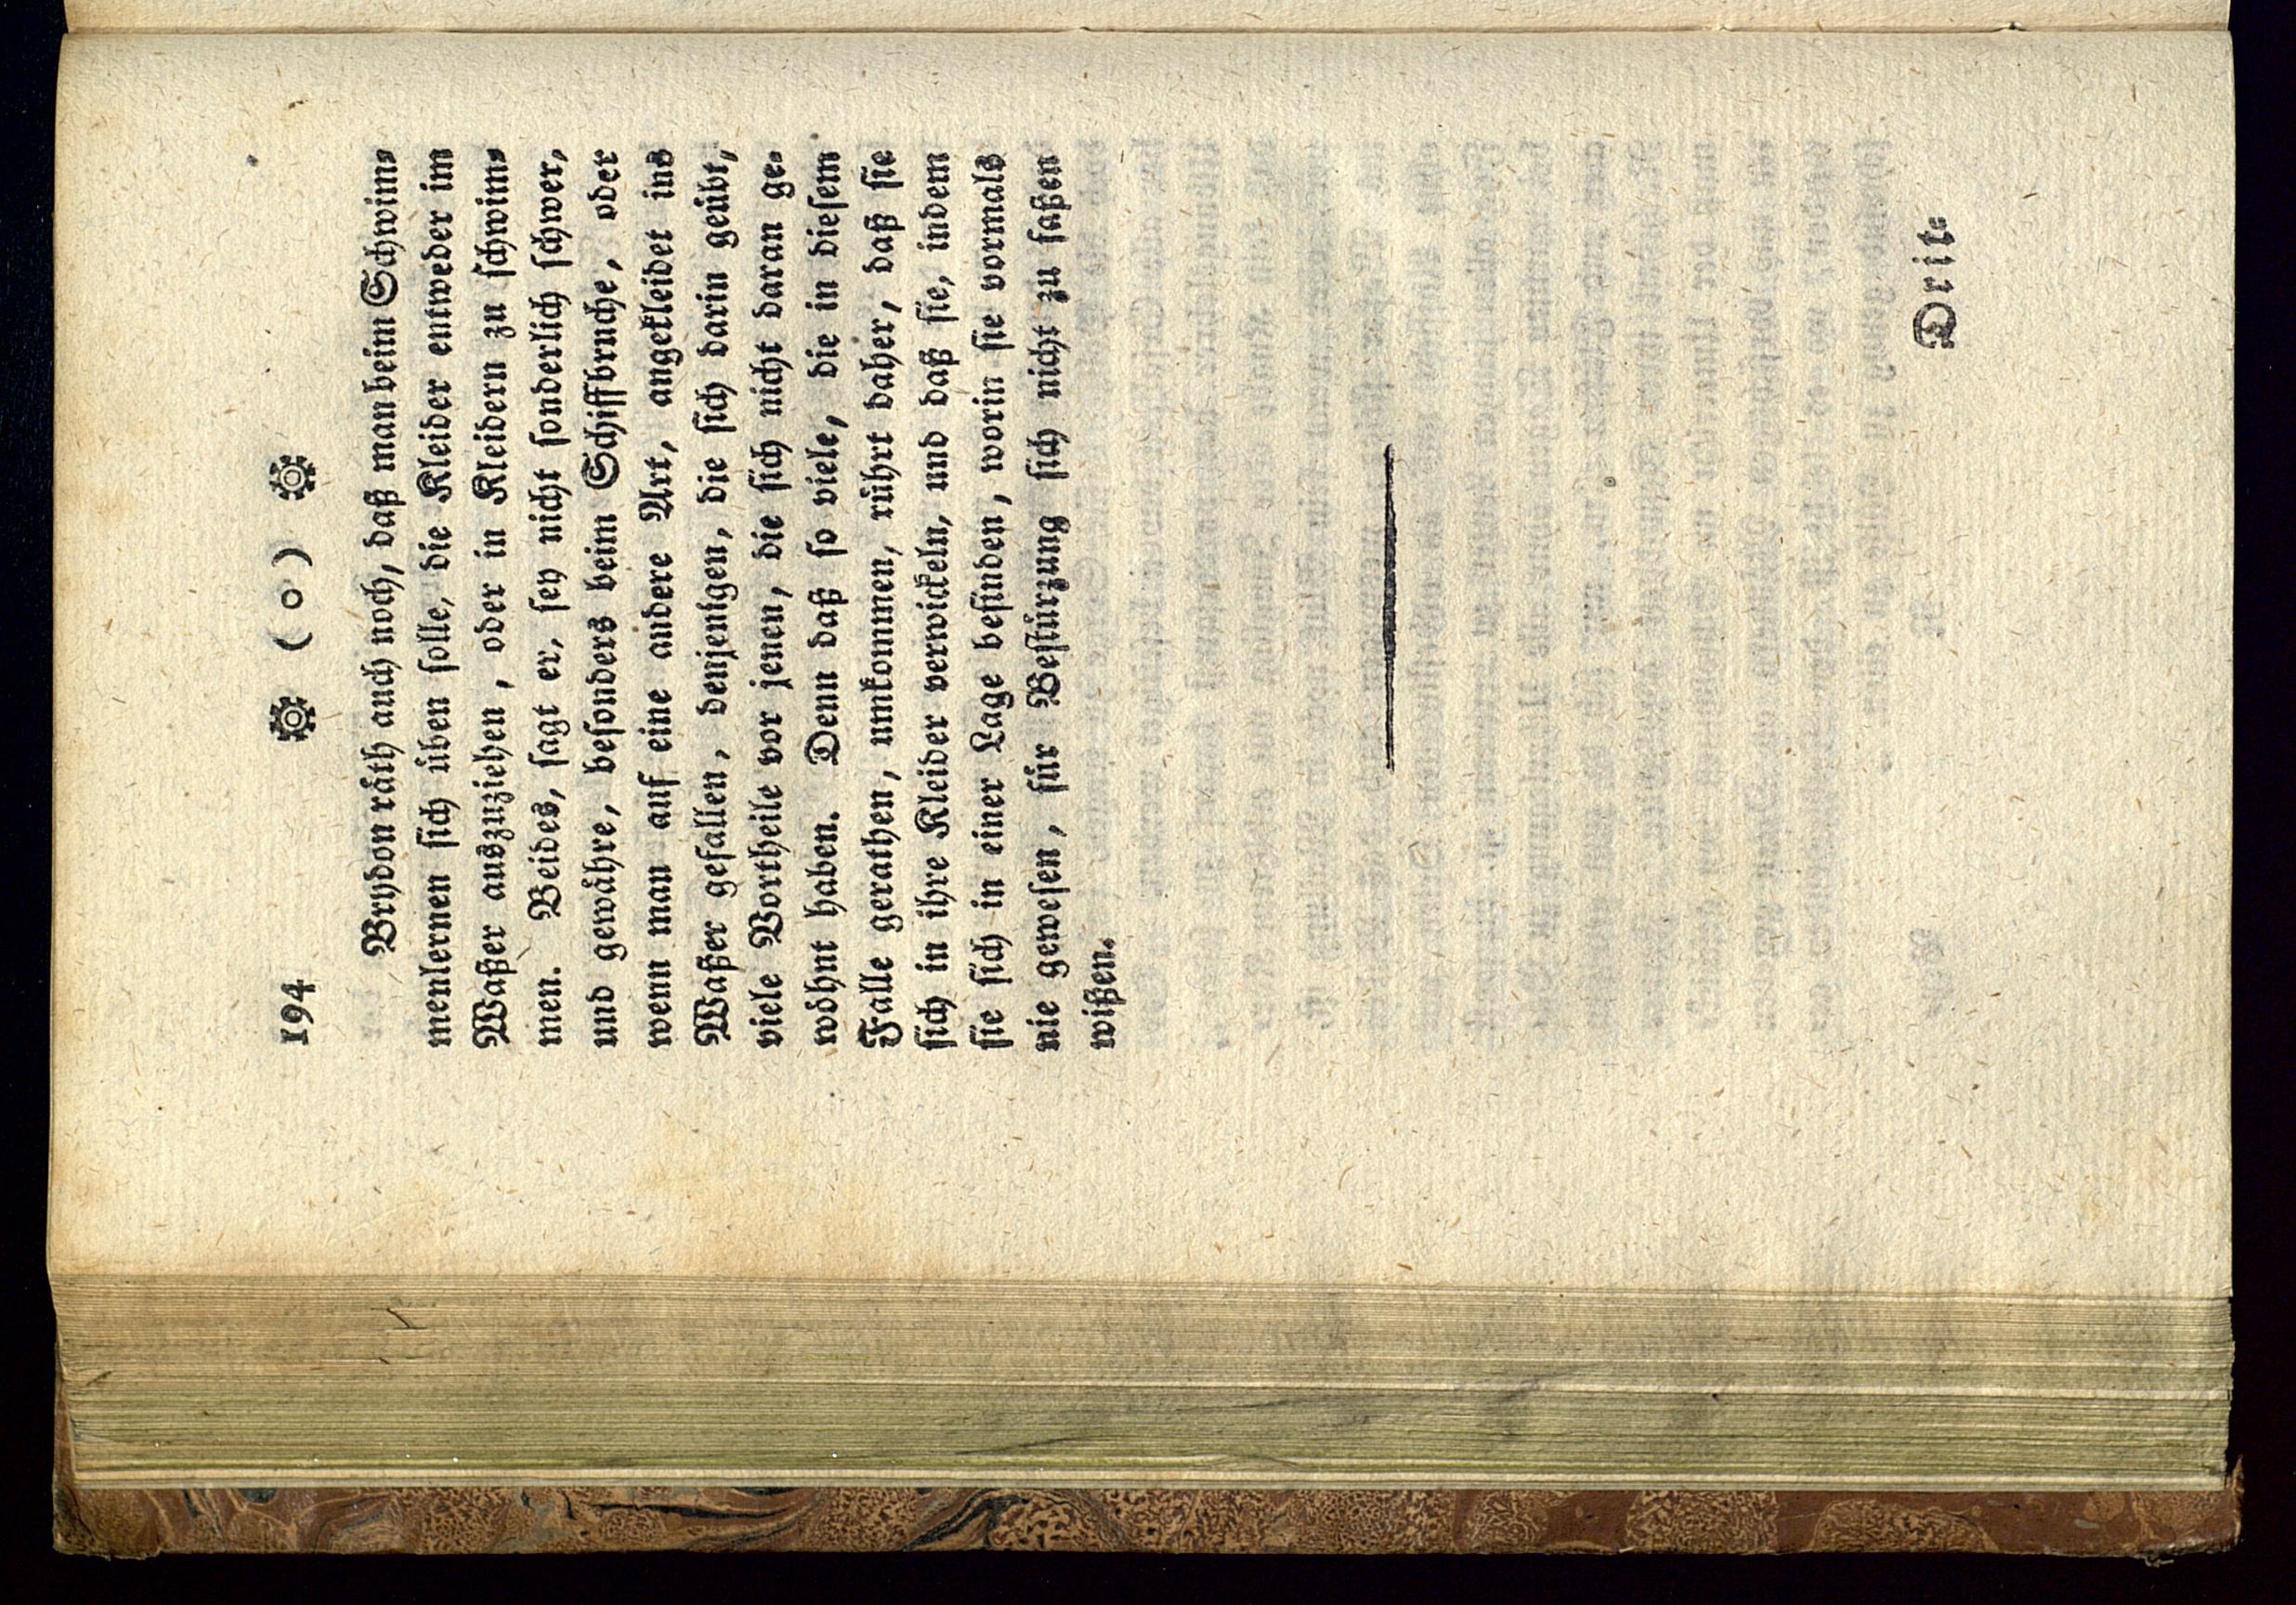 194 ❁ ( o ) ❁
Brydon råth auch noch, daß man beim Schwim⸗
menlernen ſich ůben ſolle, die Kleider entweder im
Waßer auszuziehen, oder in Kleidern zu ſchwim⸗
men. Beides, ſagt er, ſey nicht ſonderlich ſchwer,
und gewåhre, beſonders beim Schiffbruche, oder
wenn man auf eine andere Art, angekleidet ins
Waßer gefallen, denjenigen, die ſich darin geübt,
viele Vortheile vor jenen, die ſich nicht daran ge⸗
wöhnt haben. Denn daß ſo viele, die in dieſem
Falle gerathen, umkommen, růhrt daher, daß ſie
ſich in ihre Kleider verwickeln, und daß ſie, indem
ſie ſich in einer Lage befinden, worin ſie vormals
nie geweſen, fůr Beſtůrzung ſich nicht zu faßen
wißen.
Drit⸗